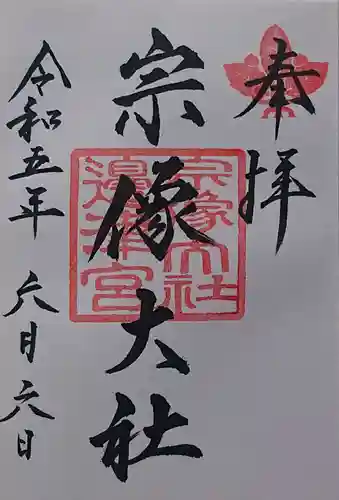 奉拝
宗像大社
宗像大社
邊津宮
令和五年六月六日